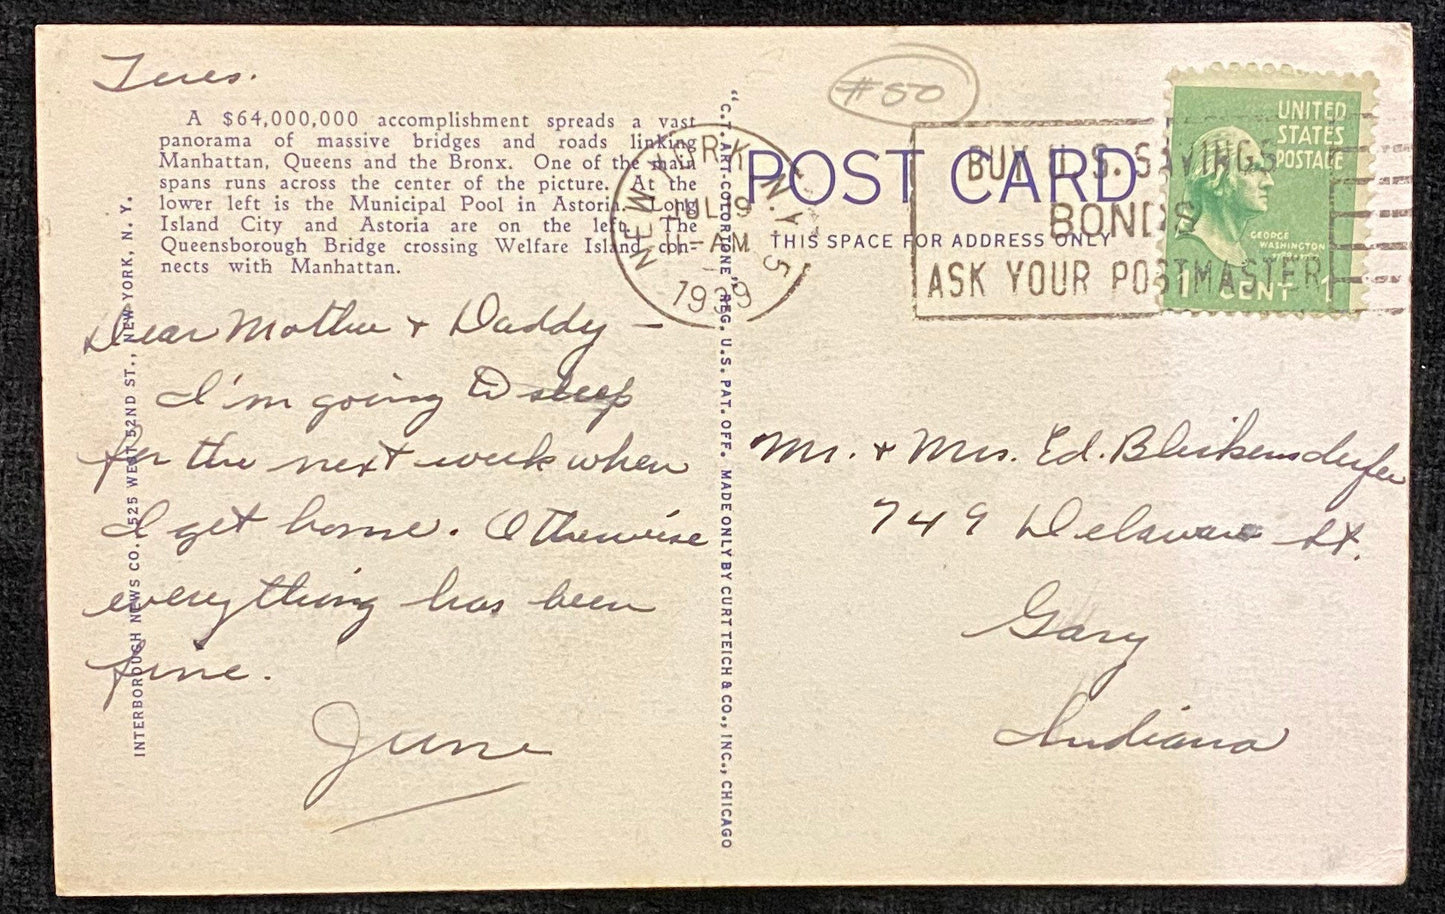 Tues.
#50
A $64,000,000 accomplishment spreads a vast
panorama of massive bridges and roads linking
Manhattan, Queens and the Bronx. One of the main
spans runs across the center of the picture. At the
lower left is the Municipal Pool in Astoria. Long
Island City and Astoria are on the left. The
Queensborough Bridge crossing Welfare Island con-
nects with Manhattan.
Dear Mother + Daddy -
I'm going to sleep
for the next week when
I get home. Otherwise
everything has been
fine.
June
INTERBOROUGH NEWS CO. 525 WEST 52ND ST., NEW YORK, N. Y.
"C.T. ART-COLORTONE" REG. U.S. PAT. OFF. MADE ONLY BY CURT TEICH & CO., INC., CHICAGO
POST CARD
THIS SPACE FOR ADDRESS ONLY
NEW YORK N.Y. 5
JUL 9
1 AM
BUY U.S. SAVINGS
BONDS
ASK YOUR POSTMASTER
UNITED
STATES
POSTAGE
GEORGE
WASHINGTON
1 CENT 1
Mr. + Mrs. Ed. Blickensderfer
749 Delaware St.
Gary
Indiana